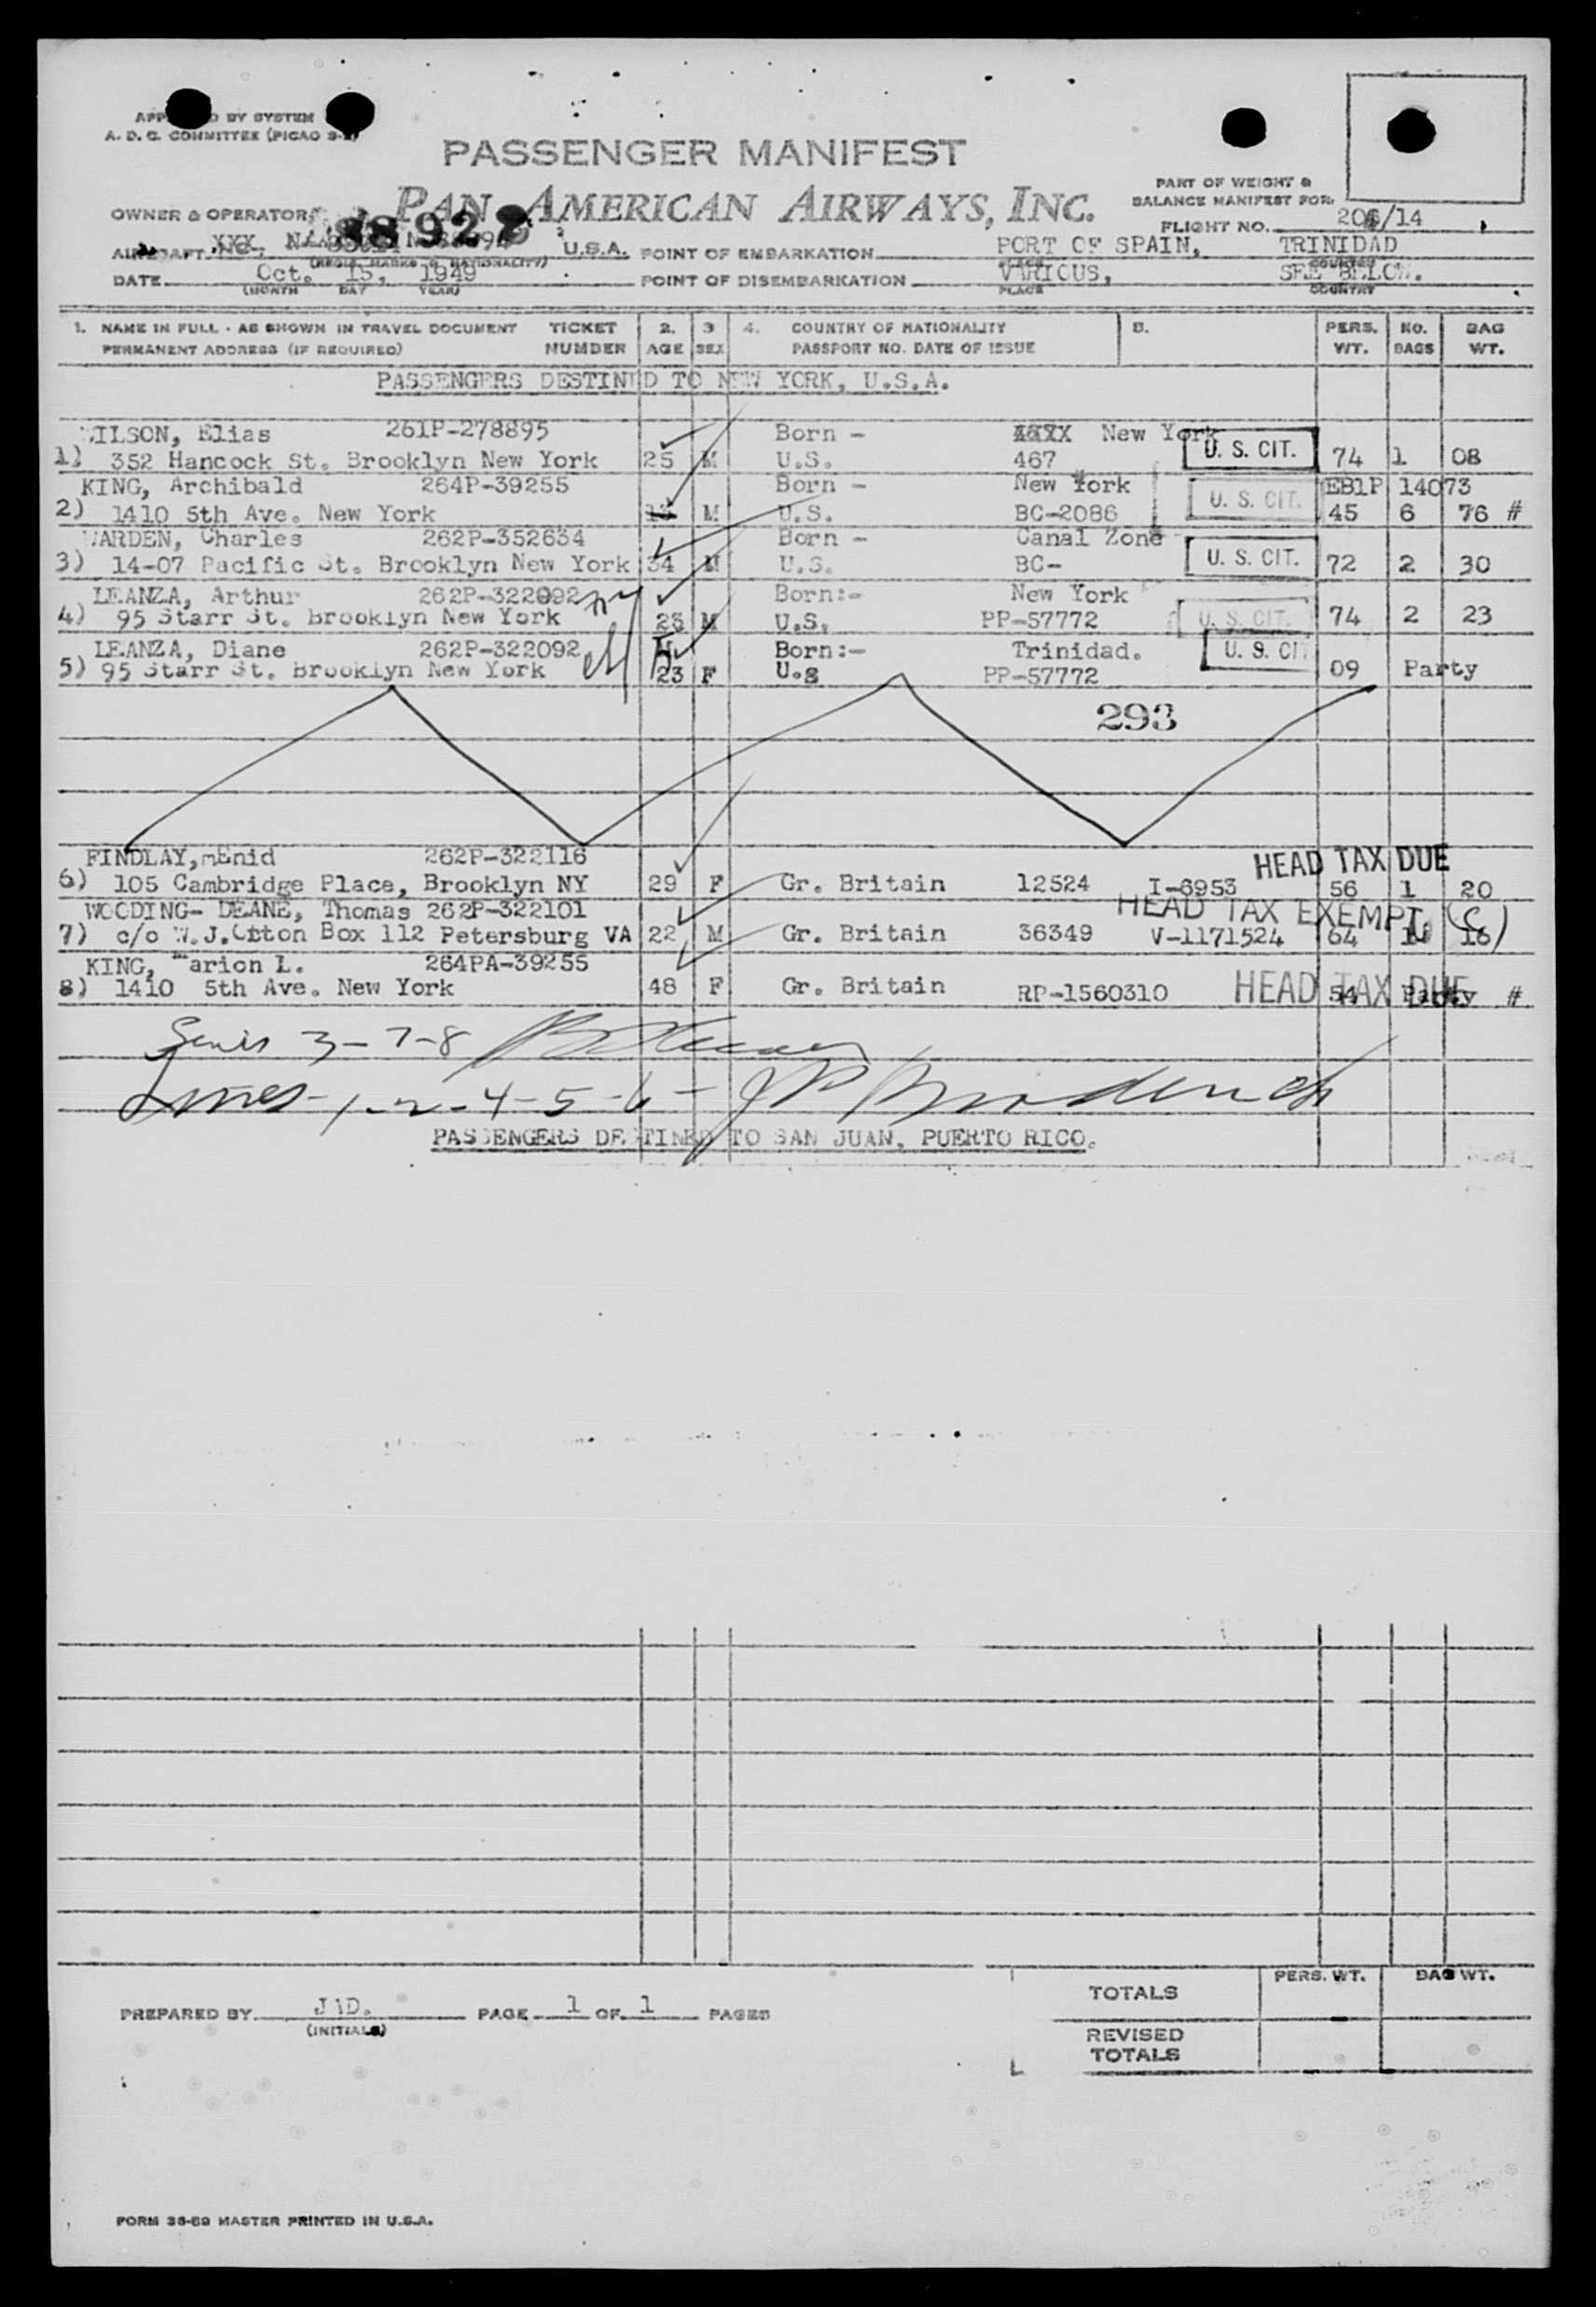 BY SYSTEM
A. D. C. COMMITTEE (PICAO
PASSENGER MANIFEST
PAN AMERICAN AIRWAYS, INC.
PART OF WEIGHT &
BALANCE MANIFEST FOR
OWNER & OPERATOR
FLIGHT NO. /14
U.S.A. POINT OF EMBARKATION PORT OF SPAIN, TRINIDAD
(REGIS. MARKS & NATIONALITY) PLACE COUNTRY
DATE Oct. 15, 1949 POINT OF DISEMBARKATION VARIOUS, SEE BELOW.
(MONTH DAY YEAR) PLACE COUNTRY
1. NAME IN FULL - AS SHOWN IN TRAVEL DOCUMENT TICKET 2. 3 4. COUNTRY OF NATIONALITY 5. PERS. NO. BAG
PERMANENT ADDRESS (IF REQUIRED) NUMBER AGE SEX PASSPORT NO. DATE OF ISSUE WT. BAGS WT.
PASSENGERS DESTINED TO NEW YORK, U.S.A.
WILSON, Elias 261P-278895 Born - New York
1) 352 Hancock St. Brooklyn New York 25 M U.S. 467 U. S. CIT. 74 1 08
KING, Archibald 264P-39255 Born - New York EB1P 14073
2) 1410 5th Ave. New York M U.S. BC-2086 U. S. CIT. 45 6 76 #
WARDEN, Charles 262P-352634 Born - Canal Zone
3) 14-07 Pacific St. Brooklyn New York 34 M U.S. BC- U. S. CIT. 72 2 30
LEANZA, Arthur 262P-322092 Born:- New York
4) 95 Starr St. Brooklyn New York M U.S. PP-57772 U. S. CIT. 74 2 23
LEANZA, Diane 262P-322092 Born:- Trinidad. U. S. CIT
5) 95 Starr St. Brooklyn New York 23 F U.S PP-57772 09 Party
293
FINDLAY, Enid 262P-322116 HEAD TAX DUE
6) 105 Cambridge Place, Brooklyn NY 29 F Gr. Britain 12524 I-6953 56 1 20
WOODING- DEANE, Thomas 262P-322101 HEAD TAX EXEMPT (C)
7) c/o W.J. Box 112 Petersburg VA 22 M Gr. Britain 36349 V-1171524 64 16
KING, Marion L. 264PA-39255
8) 1410 5th Ave. New York 48 F Gr. Britain RP-1560310 HEAD TAX DUE 54 Party #
3-7-8
Lines-1-2-4-5-6-
PASSENGERS DESTINED TO SAN JUAN, PUERTO RICO.
PERS. WT. BAG WT.
TOTALS
PREPARED BY PAGE 1 OF 1 PAGES
(INITIALS)
REVISED
TOTALS
FORM 36-69 MASTER PRINTED IN U.S.A.